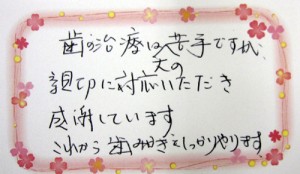 歯の治療は大の苦手ですが、
親切に対応いただき
感謝しています
これから歯みがきをしっかりやります。